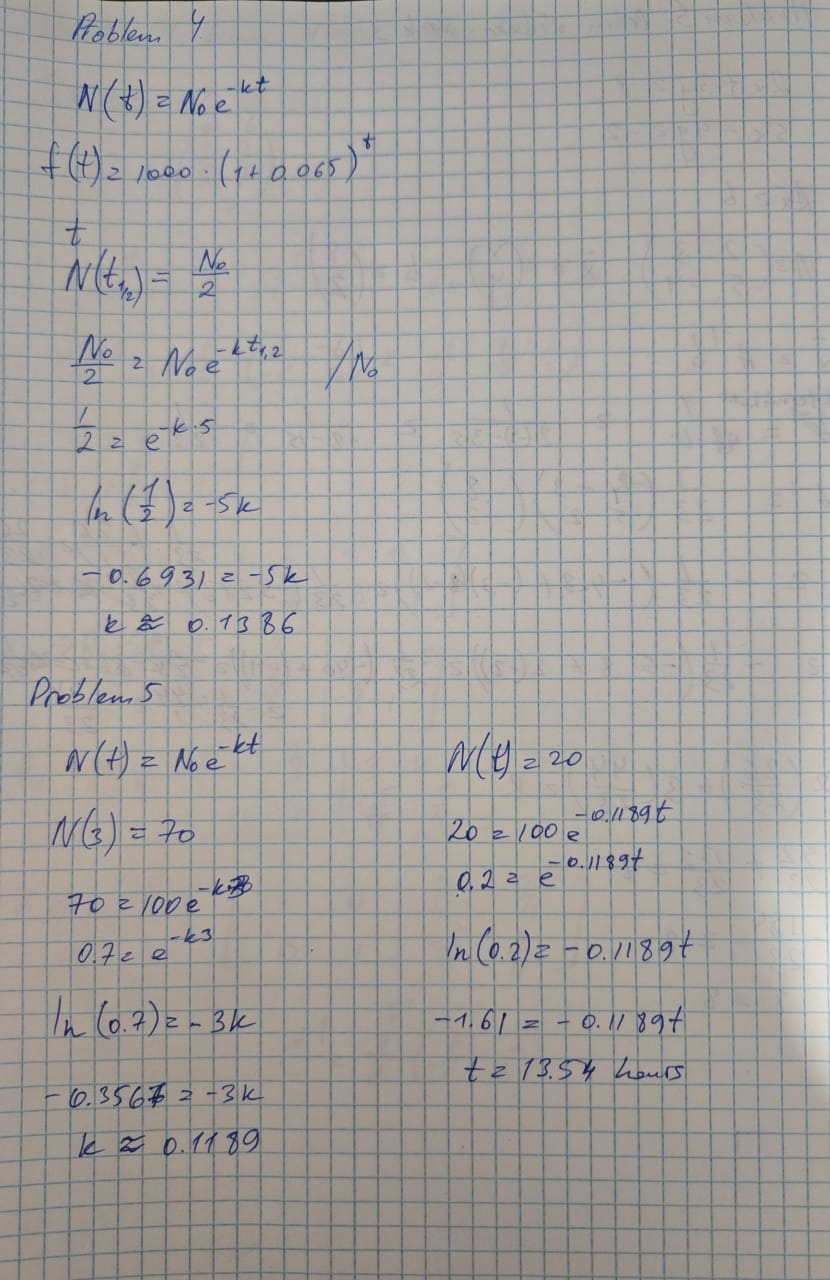 Problem 4
N(t) = N₀e^-kt
f(t) = 1000 · (1 + 0.065)^t
t
N(t₁/₂) = N₀/2
N₀/2 = N₀e^-kt₁,₂ /N₀
1/2 = e^-k·5
ln(1/2) = -5k
-0.6931 = -5k
k ≈ 0.1386
Problem 5
N(t) = N₀e^-kt
N(3) = 70
70 = 100e^-k·3
0.7 = e^-k3
ln(0.7) = -3k
-0.3567 = -3k
k ≈ 0.1189
N(t) = 20
20 = 100e^-0.1189t
0.2 = e^-0.1189t
ln(0.2) = -0.1189t
-1.61 = -0.1189t
t = 13.54 hours